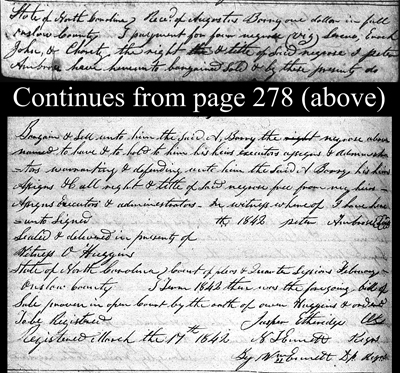 State of North Carolina } Recd of Augostos Borry one dollar in full
onslow County } payment for four negroe (viz) Enoch
John, & Charity the right & title of Said negroes I peter
Ambrose have hereunto bargained Sold & by these presents do
Continues from page 278 (above)
Bargain & Sell unto him the Said A, Borry the right negroes above
named to have & to hold to him his heirs executors assigns & administra
tors warranting & defending unto him the Said A Borry his heirs
Assigns & all right & title of Said negroes free from my heirs
Assigns executors & administrators In witness whereof I have here
unto Signed th 1842 peter Ambrose
Sealed & delivered in presents of
Witness O Huggins
State of North Carolina } Court of pleas & Quarter Sessions February
Onslow County } Term 1842 then was the foregoing bill of
Sale proven in open Court by the oath of owen Huggins & ordered
To be Registered Jasper Etheridge Clk
Registered March the 17th 1842 Regr
By Wm Ennett D.